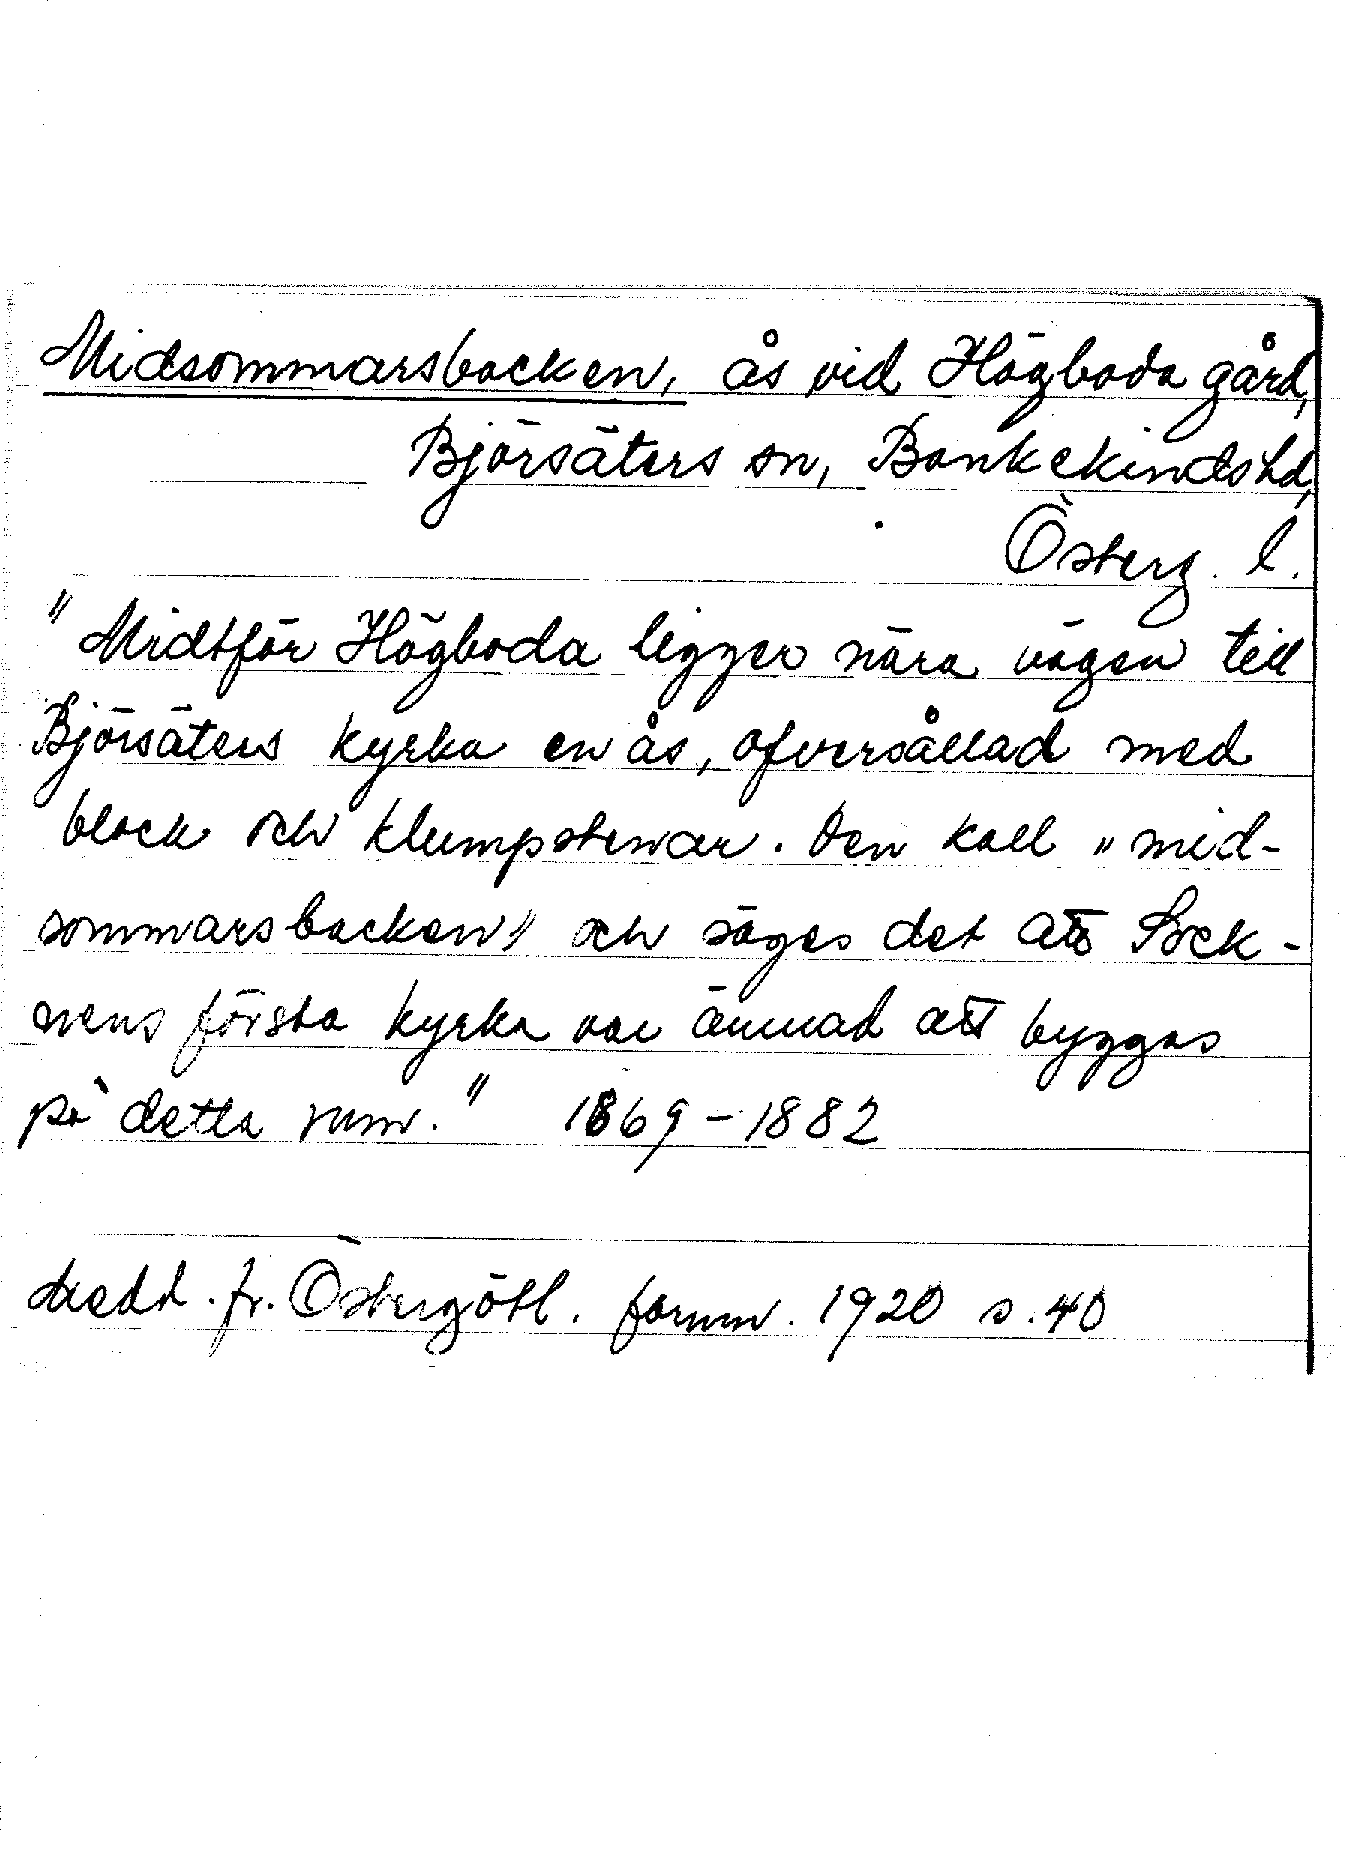 Midsommarsbacken, ås vid Högboda gård,
Björsäters sn, Bankekinds hd,
Österg. l.
"Midtför Högboda ligger nära vägen till
Björsäters kyrka en ås, ofversållad med
block och klumpstenar. Den kall „mid-
sommarsbacken" och säges det att Sock-
nens första kyrka var ämnad att byggas
på detta rum." 1869-1882
Medd. fr. Östergötl. fornm. 1920 s. 40